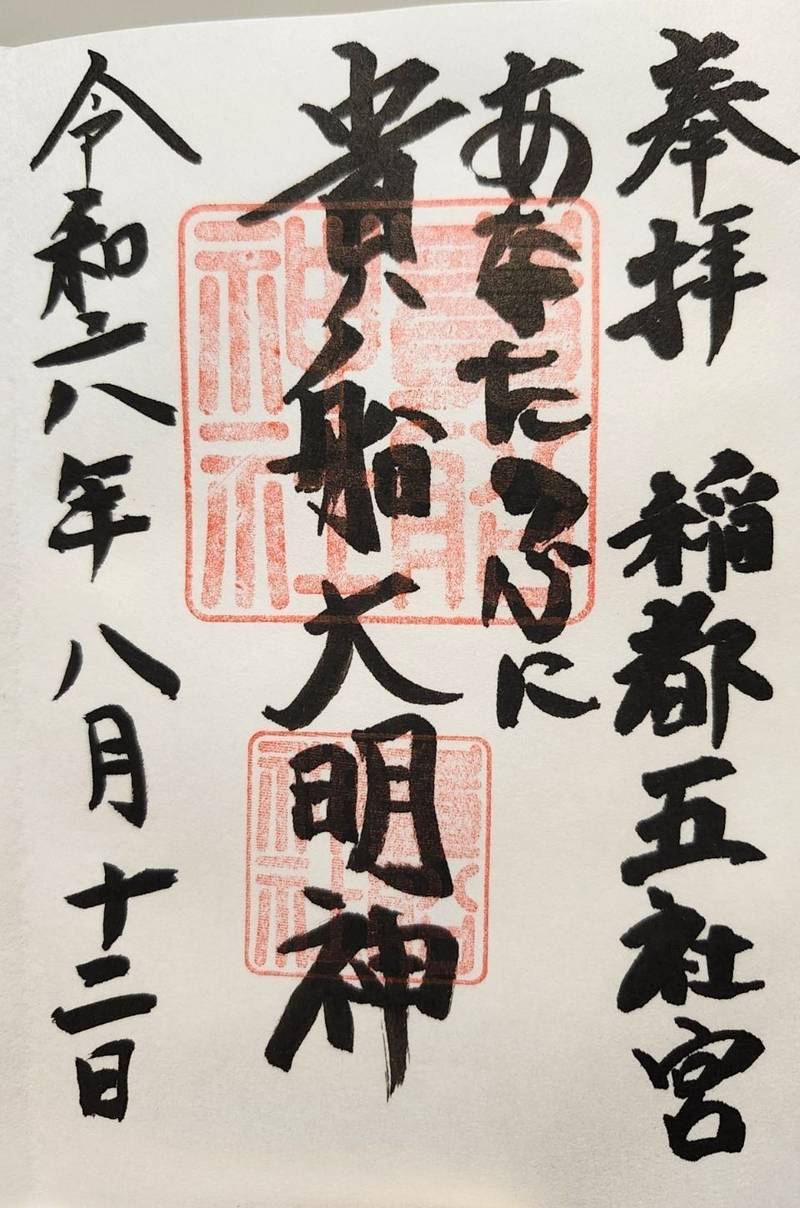 奉拝 稲都五社宮
あなた に
貴船大明神
令和六年 八月十二日
貴船神社